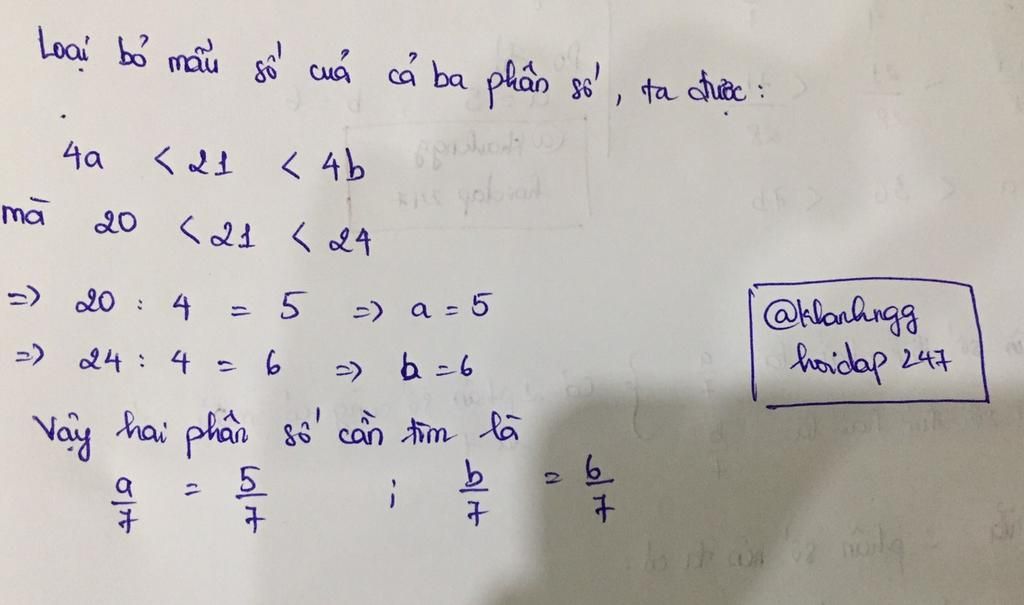 Loại bỏ mẫu số cuả cả ba phân số, ta được:
4a < 21 < 4b
mà 20 < 21 < 24
=> 20 : 4 = 5 => a = 5
=> 24 : 4 = 6 => b = 6
@khanhngg
hoidap 247
Vậy hai phân số cần tìm là
a/7 = 5/7 ; b/7 = 6/7